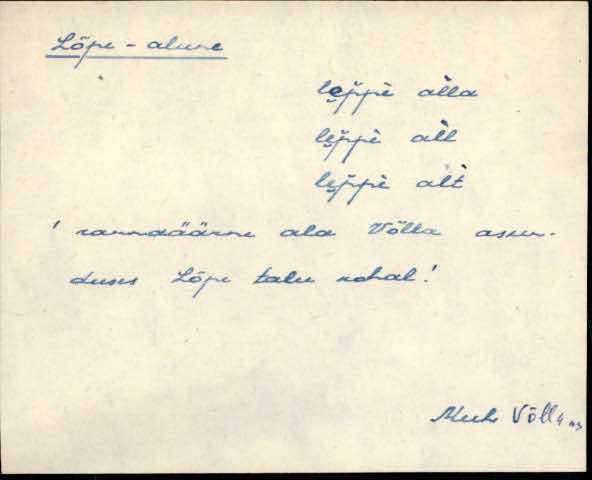 Lõpe-alune
lẹp̆pè àlla
lẹp̆pè àll
lẹp̆pè àlt
' rannaäärne ala Võlla asun-
duses Lõpe talu kohal!
Muh Võlla